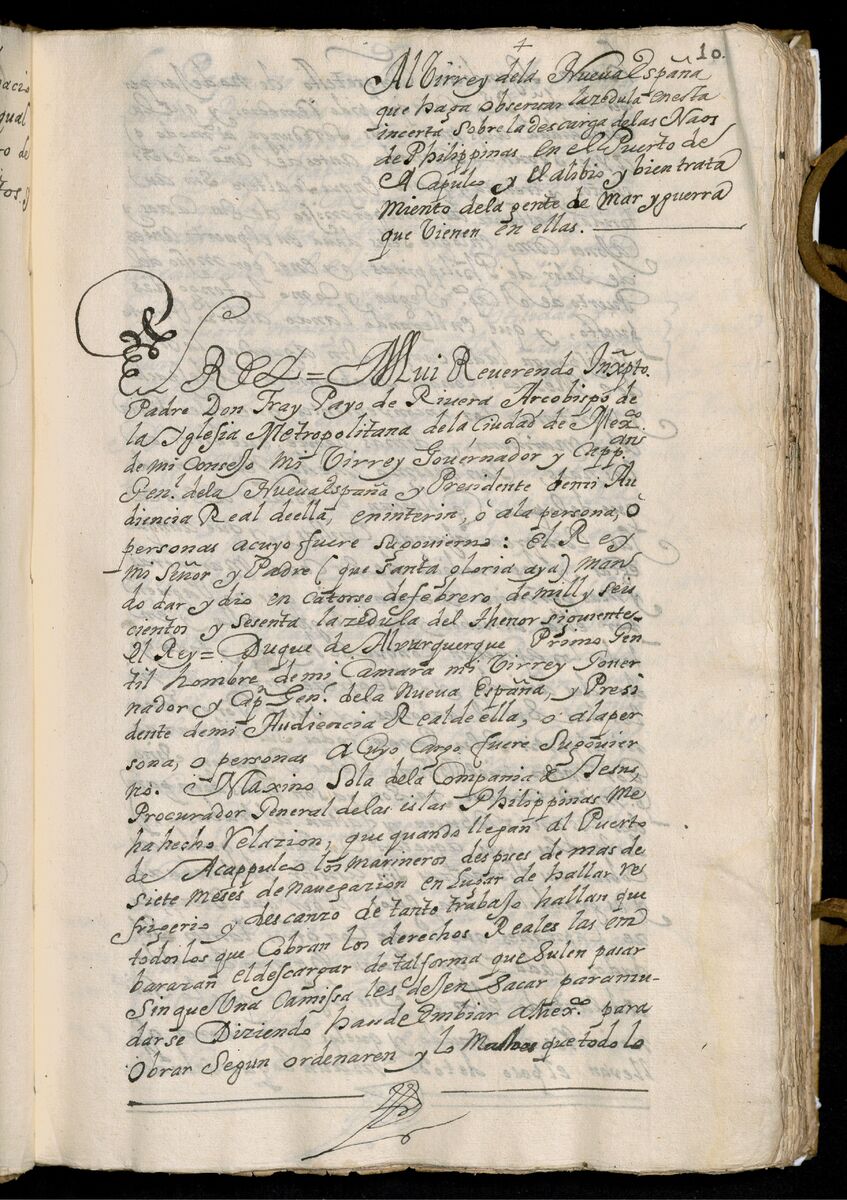 10.
Al Virrey dela Nueva España
que haga observar lazedula enesta
incerta sobre la descarga delas Naos
de Philippinas en el Puerto de
ACapulco y el alibio y bien trata
miento dela gente de Mar y guerra
que Vienen en ellas.
EL REL = Mui Reuerendo Inxpto.
Padre Don Fray Payo de Riuera Arcobispo de
la Yglesia Metropolitana dela Ciudad de Mexo.
de mi Consejo mi Virrey Gouernador y Capp.an
Genl. dela Nueva España y Presidente demi Au
diencia Real deella, eninterin, ò ala persona, ò
personas acuyo fuere sugouierno: El Rey
mi Señor y Padre (que santa gloria aya) man
do dar y dio en catorse defebrero de mill y seis
cientos y sesenta lazedula del thenor siguiente
El Rey = Duque de Alvurquerque Primo Gen
til hombre demi Camara mi Virrey Gouer
nador y Capn. Genl. dela Nueva España, y Presi
dente demi Audiencia Realdeella, o alaper
sona, o personas aCuyo Cargo fuere Sugouier
no. Maxino Sola dela Compania de Jesus,
Procurador General delas islas Philippinas Me
ha hecho Relazion, que quando llegan al Puerto
de Acappulco los marineros despues de mas de
siete Meses de navegazion en Lugar de hallar re
frigerio y descanzo de tanto trabajo hallan que
todos los que Cobran los derechos Reales las em
barazan eldescargar de talforma que Suelen pasar
Sin que Una Camissa les dejen Sacar paramu-
darse Diziendo hande Embiar aMexo. para
Obrar Segun ordenaren y lo que todo lo